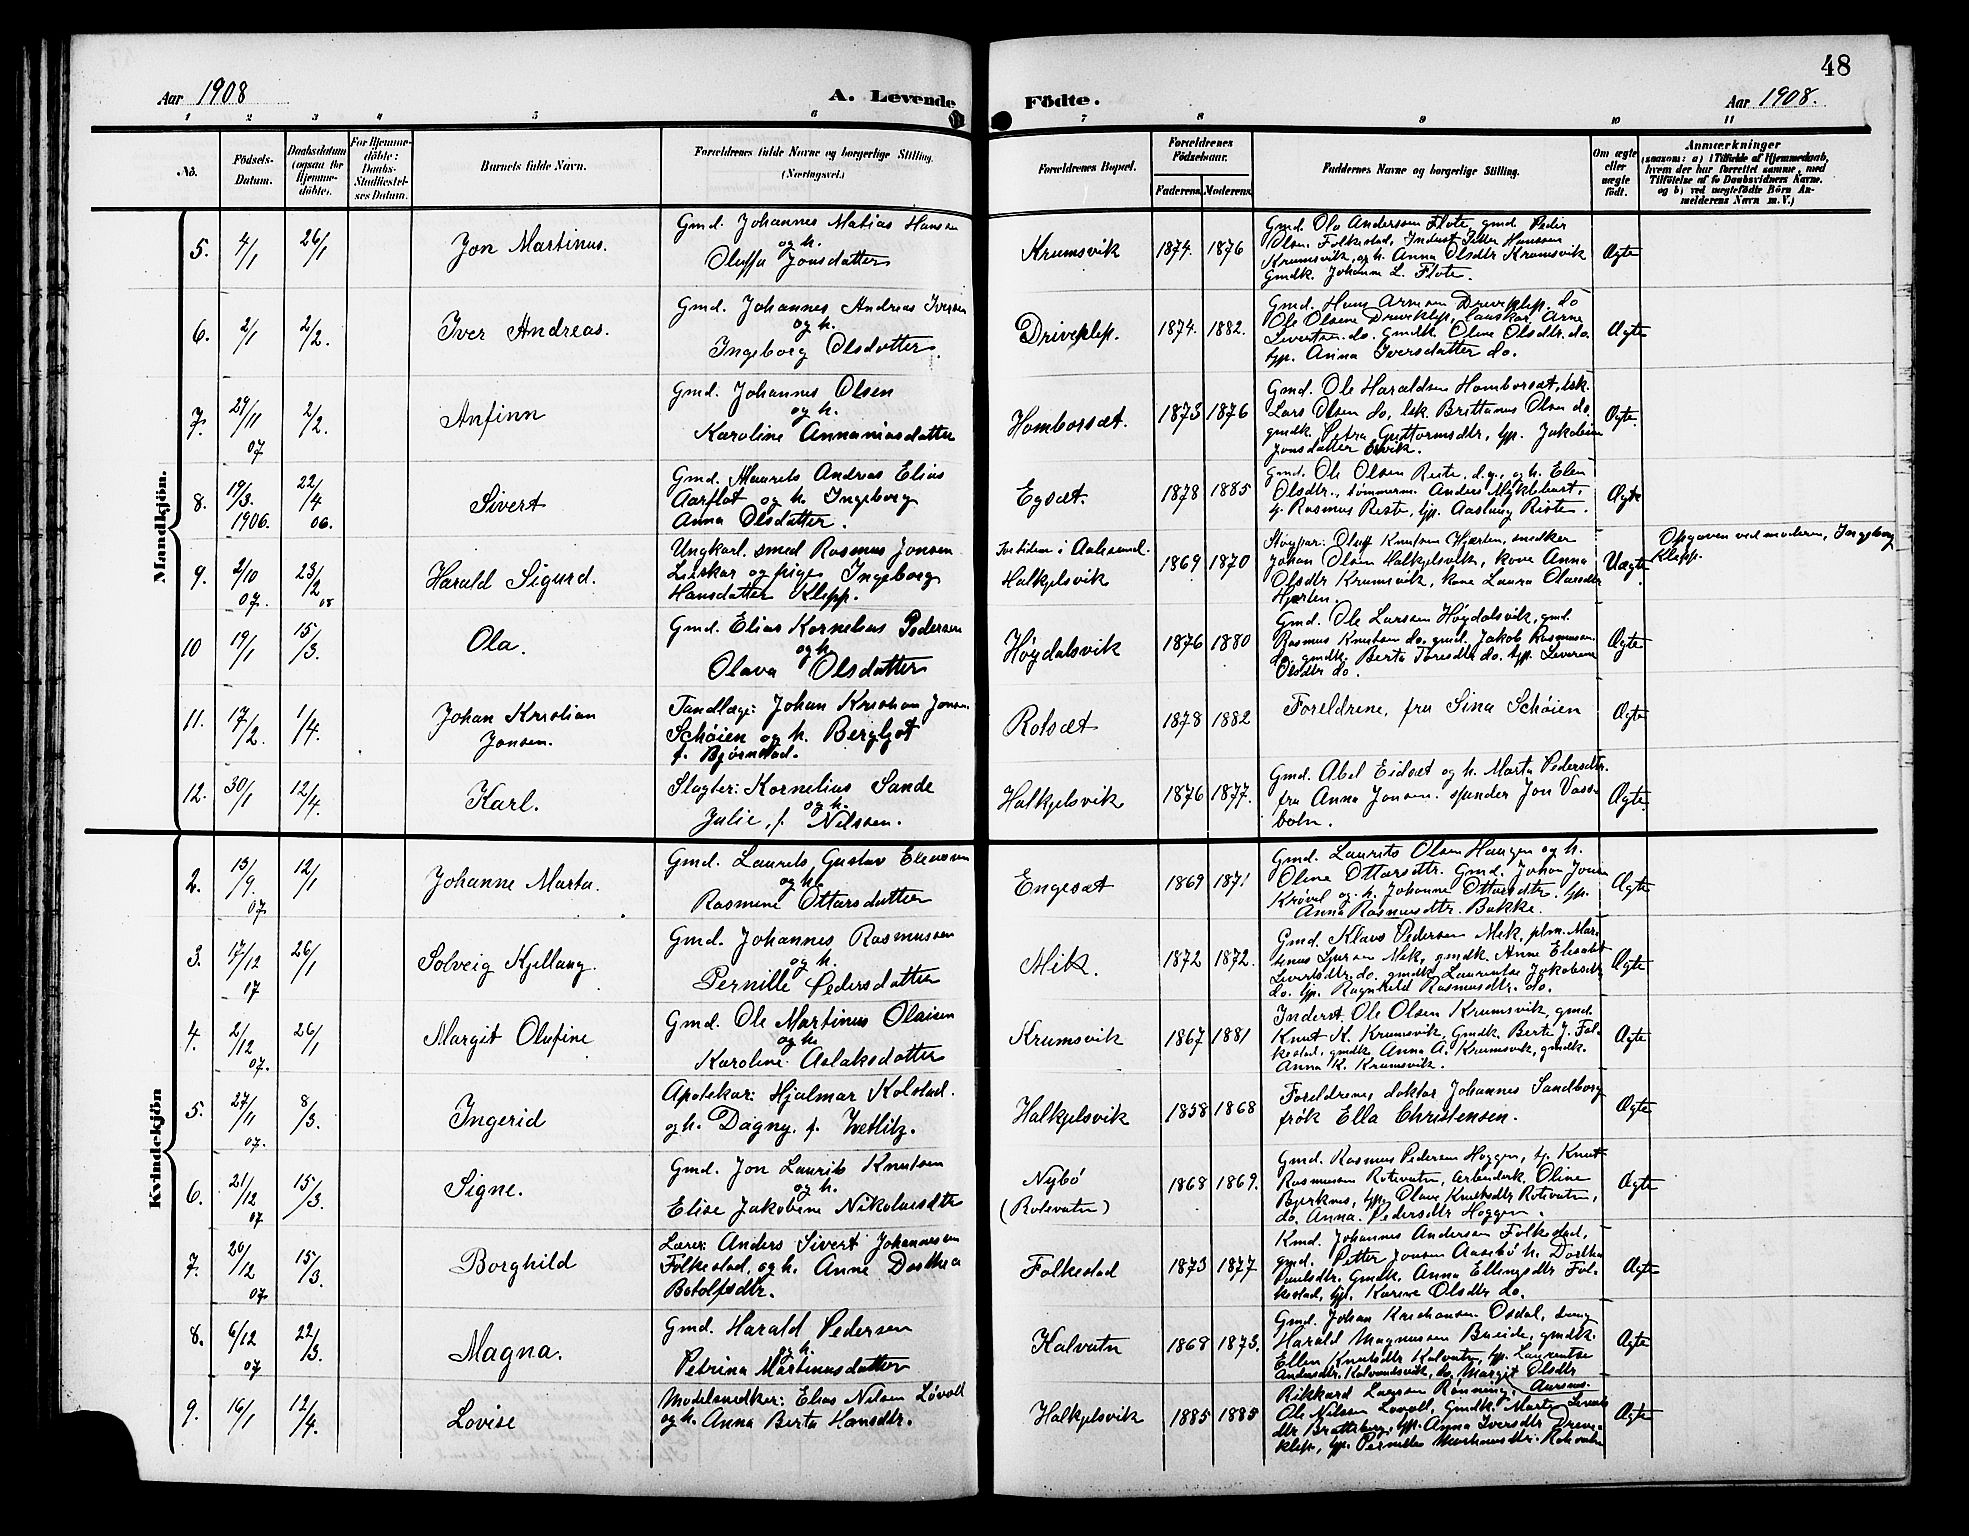 48
Aar 1908
A. Levende Födte.
Aar 1908.
1 2 3 4 5 6 7 8 9 10 11
No.
Födsels-
Datum.
Daabsdatum
(ogsaa for
Hjemme-
döbte).
For Hjemme-
döbte:
Daabs-
Stadfæstel-
ses Datum.
Barnets fulde Navn.
Forældrenes fulde Navne og borgerlige Stilling.
(Næringsvei.)
Forældrenes Bopæl.
Forældrenes
Födselsaar.
Faderens. Moderens.
Faddernes Navne og borgerlige Stilling.
Om ægte
eller
uægte
født.
Anmærkninger
(saasom: a) i Tilfælde af Hjemmedaab,
hvem der har forrettet samme, med
Tilføielse af to Daabsvidners Navne.
og b) ved uægtefödte Börn An-
melderens Navn m. V.)
Mandkjön.
5. 4/1 26/1 Jon Martinus.
Gmd. Johannes Matias Hansen
og h.
Oluffa Jonsdatter
Krumsvik 1874. 1876
Gmd. Ola Andersen Flote, gmd. Peder
Olsen Folkestad, Inderst Petter Hanssen
Krumsvik, og h. Anna Olsdtr Krumsvik
Gmdk. Johanna L. Flote.
Ægte
6. 2/1 2/2. Iver Andreas.
Gmd. Johannes Andreas Iversen
og h.
Ingeborg Olsdatter.
Driveklep. 1874. 1882.
Gmd. Hans Arnesen Driveklep. do
Ole Olsene Driveklep, Arne
Sivertsen do. gmdk. Oline Olsdtr. do.
tjp. Anna Iversdatter do.
Ægte
7. 29/11 07 2/2. Anfinn
Gmd. Johannes Olsen
og h.
Karoline Annaniasdatter
Homborsæt. 1873 1876
Gmd. Ole Haraldsen Homborsæt, lsk.
Lars Olsen do, lsk. Brittanus Olsen do.
gmdk. Petra Guttormsdtr, tjp. Jakobine
Jonsdatter Ervik.
Ægte.
8. 19/3. 1906. 22/4 06. Sivert
Gmd. Maurits Andreas Elias
Aarflot og h. Ingeborg
Anna Olsdatter.
Egsæt. 1878 1885
gmd. Ole Olsen Reste, d.y. og h. Elen
Olsdtr., tømmerm. Anders Myklebust,
g. Rasmus Reste, tjp. Aaslaug Reste.
Ægte
9. 2/10 07. 23/2 08 Harald Sigurd.
Ungkarl. smed Rasmus Jonsen
Leskar og pige Ingeborg
Hansdatter Klepp.
For tiden i Aalesund.
Halkjelsvik 1869 1870
Oluf Knutsen Hjørten, snedker
Johan Olsen Halkjelsvik, kone Anna
Olsdtr Krumsvik, kone Laura Olausdtr
Hjorten.
Uægte
Opgaven ved moderen, Ingeborg
Klepp.
10 19/1 15/3. Ola.
Gmd. Elias Kornelius Pedersen
og h.
Olava Olsdatter
Høydalsvik 1876 1880
Gmd. Ole Larssen Høydalsvik, gmd.
Rasmus Knutsen do. gmd. Jakob Rasmussen
do, gmdk. Berta Toresdtr do. tjp. Severine
Olsdtr do.
Ægte
11. 17/2. 1/4. Johan Kristian
Jonsen.
Tandlæge: Johan Kristian Jonsen
Schøien og h. Bergljot
f. Bjørnstad.
Rotsæt 1878 1882
Foreldrene, fru Sina Schøien
Ægte
12. 30/1 12/4. Karl.
Slagter: Kornelius Sande
og h.
Julie, f. Nilssen.
Halkjelsvik 1876 1877.
Gmd. Abel Eidset og h. Marta Pedersdtr.
fru Anna Jonsen. spander Jon Vasse
botn.
Ægte
Kvindekjön
2. 15/9. 07 12/1 Johanne Marta.
Gmd. Laurits Gustav Eliassen
og h.
Rasmine Ottarsdatter
Engeset 1869 1871
Gmd. Laurits Olsen Haugen og h.
Oline Ottarsdtr. Gmd. Johan Jonsen
Krøvel og h. Johanne Ottarsdtr, tjp.
Anna Rasmusdtr. Bakke.
Ægte
3. 17/12 07 26/1 Solveig Kjellaug.
Gmd. Johannes Rasmussen
og h.
Pernille Pedersdatter
Mek. 1872 1872.
Gmd. Klaus Pedersen Mek, plm. Mar-
tinus Sjursen Mek, gmdk. Anne Elisabet
Sivertsdtr. do. gmdk. Laurentse Jakobsdtr
do. tjp. Ragnhild Rasmusdtr. do.
Ægte
4. 2/12 07. 26/1 Margit Olufine
Gmd. Ole Martinus Olaisen
og h.
Karoline Aslaksdatter
Krumsvik 1867 1881
Inderst Ole Olsen Krumsvik, gmd.
Knut K. Krumsvik, Gmdk Berte J. Fol-
kestad, gmdk Anna A. Krumsvik, gmdk.
Anna K. Krumsvik.
Ægte
5. 27/11 07. 8/3. Ingerid
Apoteker: Hjalmar Kolstad.
og h. Dagny f. Wetlitz.
Halkjelsvik 1858 1868
Foreldrene, doktor Johannes Sandborg
frøk Ella Christensen.
Ægte
6. 21/12 07. 15/3. Signe.
Gmd. Jon Laurits Knutsen
og h.
Elise Jakobine Nikolaisdtr
Nybö
(Rotevatn) 1868 1869.
Gmd. Rasmus Pedersen Hoggen, g. Knut
Rasmussen Rotevatn, arbeiderk. Oline
Bjerknes, tjp. Olave Knutsdtr Rotevatn,
do. Anna Pedersdtr Hoggen.
Ægte
7. 20/12 07. 15/3. Borghild
Lærer Anders Sivert Johannessen
Folkestad, og h. Anne Dorthea
Botolfsdtr.
Folkestad 1873 1877
Kmd. Johannes Andersen Folkestad,
gmd. Petter Jonsen Aasebø h. Dorthea
Paulsdtr. Gmdk. Anna Ellingsdtr Fol-
kestad, tjp. Karine Olsdtr do.
Ægte
8. 6/12 07 22/3. Magna.
Gmd. Harald Pedersen
og h.
Petrina Martinusdatter
Kalvatn 1869 1873.
Gmd. Johan Kristiansen Osdal,
Harald Magnussen Bueide, gmdk.
Ellen Knutsdtr Kalvatn, tjp. Laurentse
Andersdtr. do. Margit Olsdtr
Aursnes.
Ægte
9. 16/1 12/4. Lovise
Modelsnedker: Elias Nilsen Løvoll
og h. Anna Berta Hansdtr.
Halkjelsvik 1885 1885
Rikkard Larsen Rønning,
Ole Nilsen Løvoll, Gmdk. Marta Sivert
dtr Brattberg, tjp. Anna Iversdtr Drive-
klep, tjp. Pernille Markusdtr. Rotevatn
Ægte